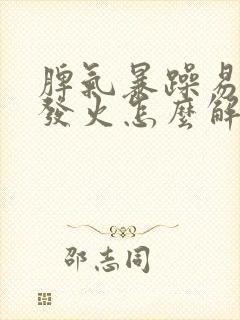 脾氣暴躁易
發火怎麼解
邵志同